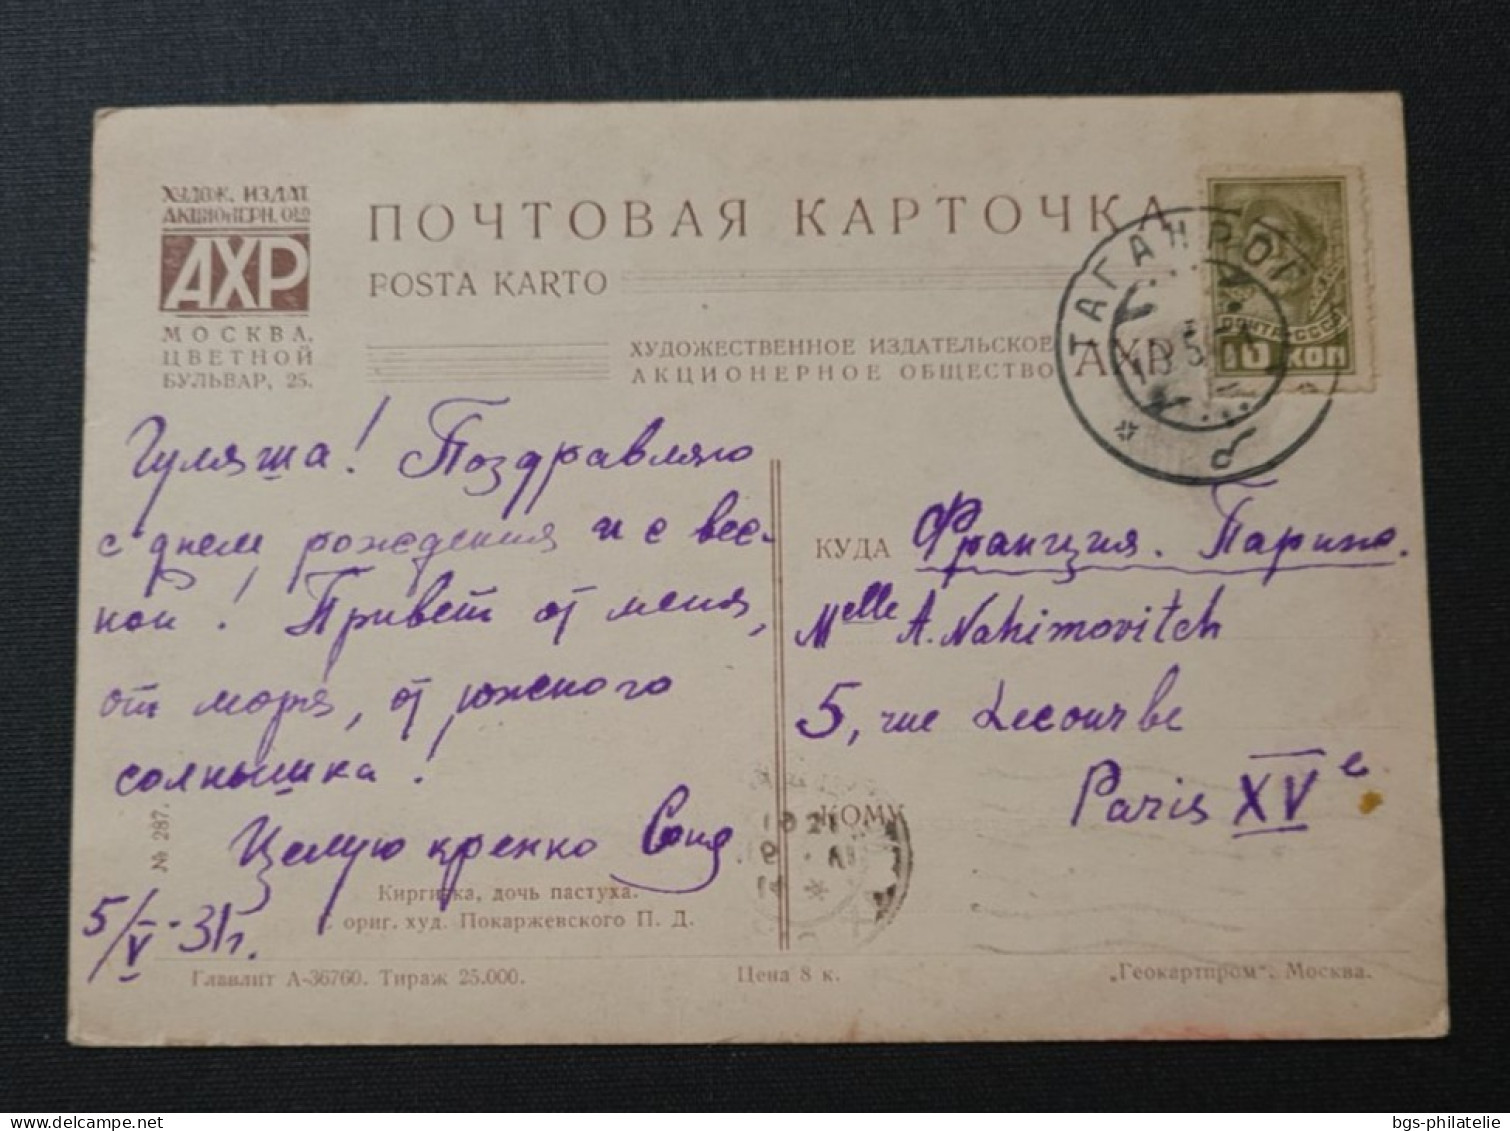 ХУДОЖ. ИЗДАТ.
АКЦИОНЕРН. О-ВО
АХР
МОСКВА,
ЦВЕТНОЙ
БУЛЬВАР, 25.
ПОЧТОВАЯ КАРТОЧКА
POSTA KARTO
ХУДОЖЕСТВЕННОЕ ИЗДАТЕЛЬСКОЕ
АКЦИОНЕРНОЕ ОБЩЕСТВО
АХР
ТАГАНРОГ
ПОЧТА СССР
10 КОП
Гуляша! Поздравляю
с днем рождения и с вес-
ной! Привет от меня,
от моря, от южного
солнышка!
Целую крепко Соня
5/V-31г.
КУДА Франция. Париж.
Melle A. Nahimovitch
5, rue Lecourbe
Paris XVe
КОМУ
№ 287.
Киргизка, дочь пастуха.
С ориг. худ. Покаржевского П. Д.
Главлит А-36760. Тираж 25.000.
Цена 8 к.
„Геокартпром“. Москва.
bgs-philatelie